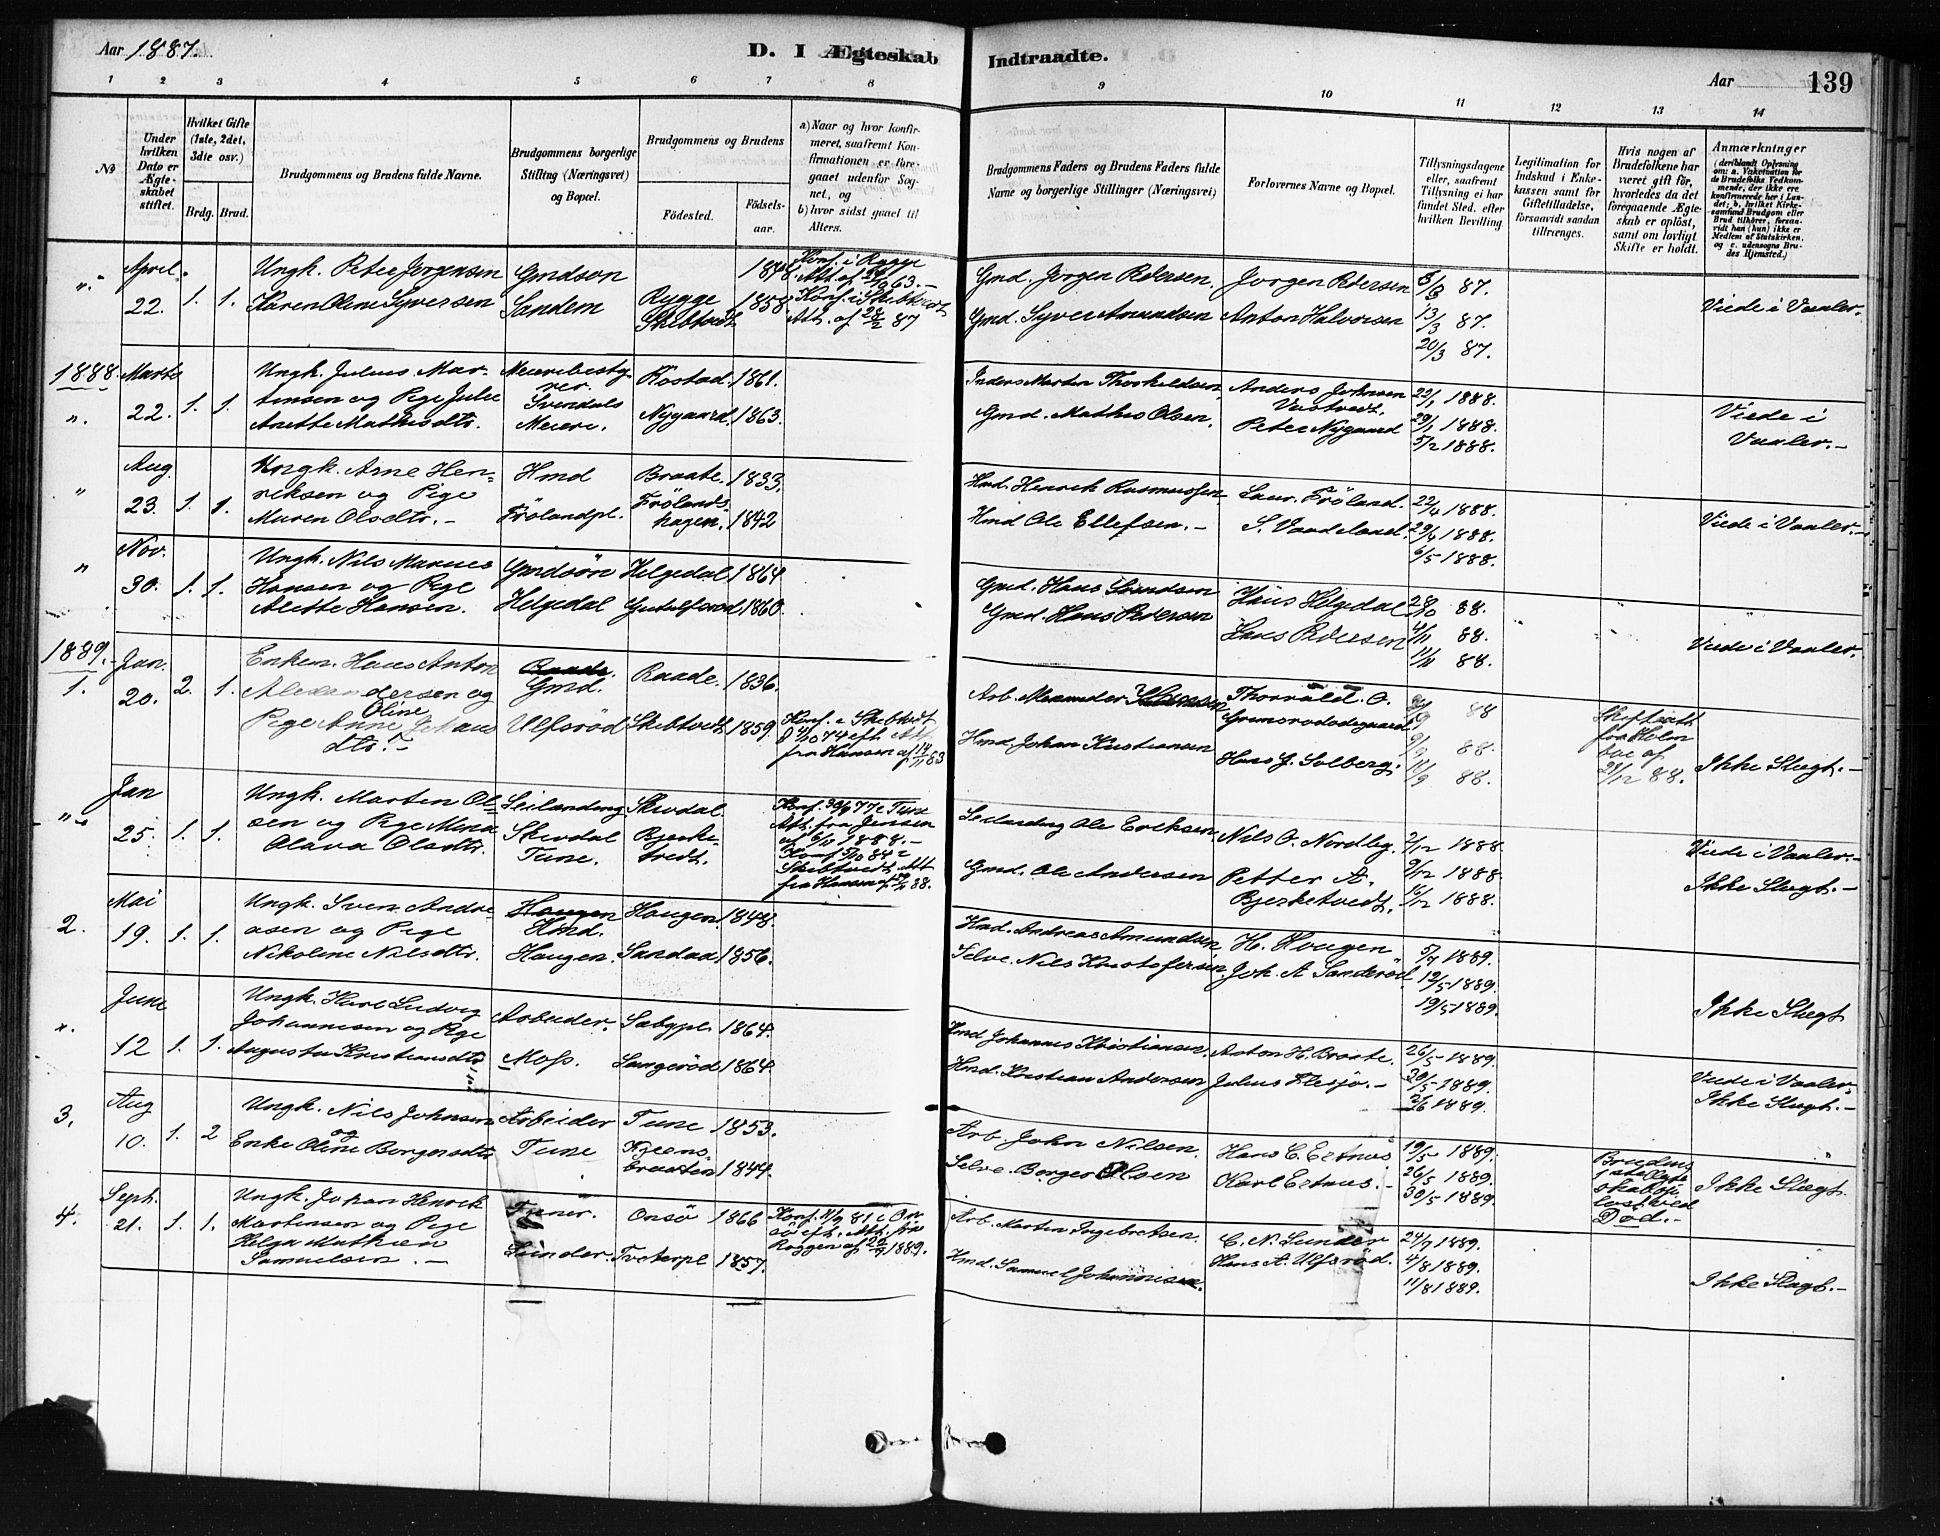 Aar 1887.
D. I Ægteskab Indtraadte.
Aar
139
1 2 3 4 5 6 7 8 9 10 11 12 13 14
No
Under hvilken Dato er Ægteskabet stiftet.
Hvilket Gifte (1ste, 2det, 3die osv.)
Brdg. Brud.
Brudgommens og Brudens fulde Navne.
Brudgommens borgerlige Stilling (Næringsvei) og Bopæl.
Brudgommens og Brudens
Fødested.
Fødselsaar.
a) Naar og hvor konfirmeret, saafremt Konfirmationen er foregaaet udenfor Sognet, og
b) hvor sidst gaaet til Alters.
Brudgommens Faders og Brudens Faders fulde Navne og borgerlige Stillinger (Næringsvei)
Forlovernes Navne og Bopæl.
Tillysningsdagene eller, saafremt Tillysning ei har fundet Sted, efter hvilken Bevilling.
Legitimation for Indskud i Enkekassen samt for Giftetilladelse, forsaavidt saadan tiltrænges.
Hvis nogen af Brudefolkene har været gift før, hvorledes da det foregaaende Ægteskab er opløst, samt om lovligt Skifte er holdt.
Anmærkninger
April 22. 1. 1.
Ungk. Peter Jørgensen
Karen Oline Syversen
Gmdsøn
Sandem
Rygge
Skibtvedt
1848.
1858.
Konf. i Rygge
Konf. i Skibtvedt
Att. af 28/2 87
Gmd. Jørgen Pedersen.
Gmd. Syver Amundsen
Jørgen Pedersen
Anton Halvorsen
13/3 87.
20/3 87.
Viede i Vaaler.
1888.
Marts 22. 1. 1.
Ungk. Julius Martinsen og Pige Julie
Anette Mathisdtr.
Meieribestyrer.
Svendals
Meieri.
1861.
Nygaard. 1863.
Inders. Martin Thorkildsen
Gmd. Mathis Olsen.
Anders Johnsen
Peter Nygaard
22/1 1888.
29/1 1888.
5/2 1888.
Viede i
Vaaler.
Aug 23. 1. 1.
Ungk. Arne Henriksen og Pige
Maren Olsdtr.
Hmd
Frölandpl.
Braate. 1833.
Frölandshagen. 1842
Hmd. Henrik Rasmussen
Hmd Ole Ellefsen.
Laur. Fröland.
S. Vaadeland.
22/4 1888.
29/4 1888.
6/5 1888.
Viede i Vaaler.
Nov. 30. 1. 1.
Ungk. Nils Marius
Hansen og Pige
Alette Hansen.
Gmdsön
Helgedal
Helgedal 1864.
1860.
Gmd. Hans
Gmd. Hans Pedersen
Hans Helgedal
Hans Pedersen
28/10 88.
4/11 88.
11/11 88.
Viede i Vaaler.
1889.
1.
Jan. 20. 2. 1.
Enkem. Hans Anton
Alexandersen og
Pige Anne Oline Johansdtr.
Gmd.
Ulfsröd
Raade. 1836.
Skibtvedt 1859.
Konf. i Skibtvedt
fra Hansen af
Hmd. Johan Kristiansen
Thorvald O.
Grimsrodødegaard
Hans J. Solberg.
88
88.
88.
Skifteatt.
21/12 88.
Ikke Slægt.
Jan 25. 1. 1.
Ungk. Marten Olsen og Pige Mina
Olava Olsdtr.
Leilænding
Skivdal
Tune.
Skivdal
Bjerketvedt.
Konf. 30/9 77 i Tune
Att. fra Jensen
af 6/11 1888.
Konf. 5/10 84 i
Skibtvedt. Att
fra Hansen 88.
Leilænding Ole Eriksen
Gmd. Ole Andersen
Nils O. Nordby.
Petter A.
Bjerketvedt.
2/12 1888
9/12 1888
16/12 1888.
Viede i Vaaler.
Ikke Slægt.
2.
Mai 19. 1. 1.
Ungk. Sven Andreasen og Pige
Nikoline Nilsdtr.
Hmd.
Haugen.
Haugen. 1848.
Sandaa. 1856.
Hmd. Andreas Amundsen
Selve. Nils Kristofersen.
H. Haugen
Joh. A Sanderöd
5/5 1889.
12/5 1889.
19/5 1889.
Ikke Slægt
June 12 1. 1.
Ungk. Karl Ludvig
Johannesen og Pige
Augusta Kristiansdtr
Arbeider.
Moss.
Sabypl. 1864.
Langeröd 1864.
Hmd Johannes Kristiansen.
Hmd. Kristian Andersen
Anton H. Braate.
Julius Flesjø.
26/5 1889.
30/5 1889.
2/6 1889.
Viede i Vaaler
Ikke Slægt.
3.
Aug 10. 1. 2
Ungk. Nils Johnsen
og
Enke Oline Borgersdtr
Arbeider
Tune
Tune 1853.
1844.
Arb. John Nilsen.
Selve. Borger Olsen
Hans C. Eetnus
Karl Eetnus.
19/5 1889.
26/5 1889.
30/5 1889.
Brudens
1ste Ægteskab
löst ved
Död.
Ikke Slægt
4.
Sept. 21. 1. 1.
Ungk. Johan Henrik
Martensen og Pige
Helga Mathea
Samuelsen.
Tjener.
Lunder.
Onsö 1866
Tveterpl 1857.
Konf. 11/9 81 i Onsö eft. Att. fra
Roggen af 22/7 1889.
Arb. Marten Ingebretsen.
Hmd. Samuel Johannesen.
C. N. Lunder
Hans A. Ulfsröd.
24/7 1889.
4/8 1889.
11/8 1889.
Ikke Slægt.